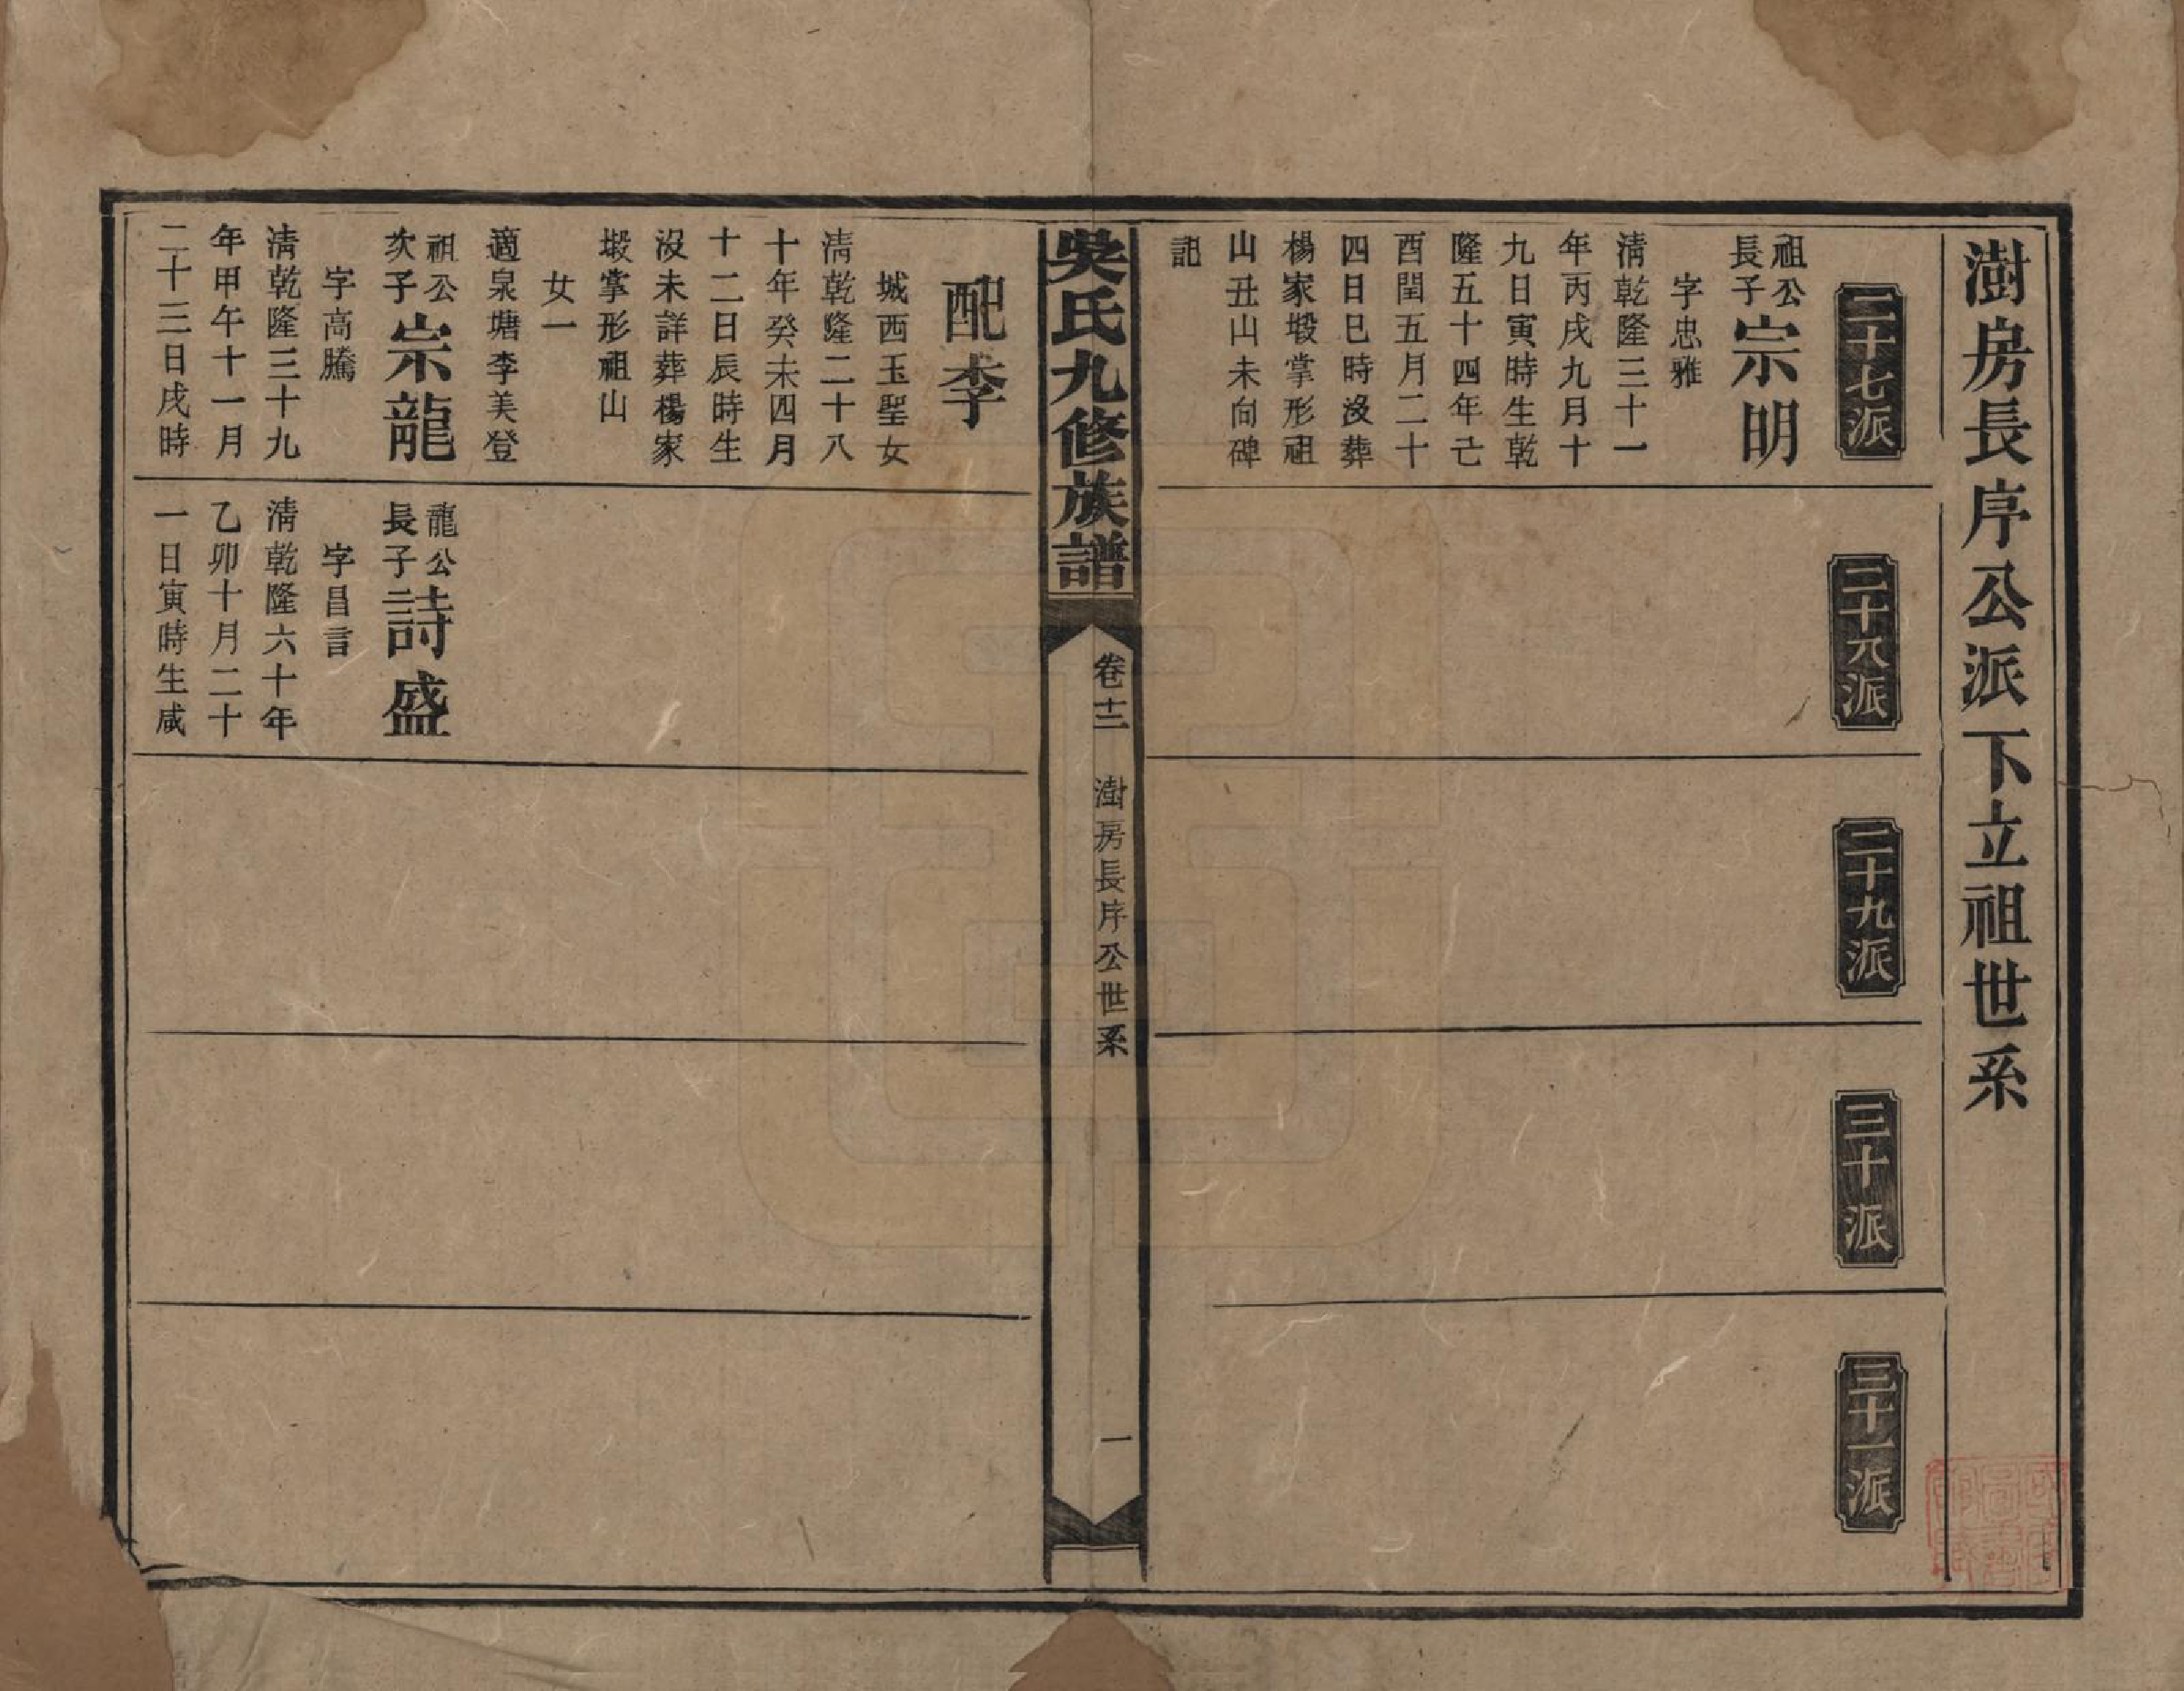 澍房長序公派下立祖世系
二十七派
二十八派
二十九派
三十派
三十一派
祖公
長子
宗明
字忠雅
清乾隆三十一
年丙戌九月十
九日寅時生乾
隆五十四年己
酉閏五月二十
四日巳時沒葬
楊家塅掌形祖
山丑山未向碑
記
吳氏九修族譜
卷十二
澍房長序公世系
一
配李
城西玉聖女
清乾隆二十八
十年癸未四月
十二日辰時生
沒未詳葬楊家
塅掌形祖山
女一
適泉塘李美登
祖公
次子
宗龍
字高騰
清乾隆三十九
年甲午十一月
二十三日戌時
龍公
長子
詩盛
字昌言
清乾隆六十年
乙卯十月二十
一日寅時生咸